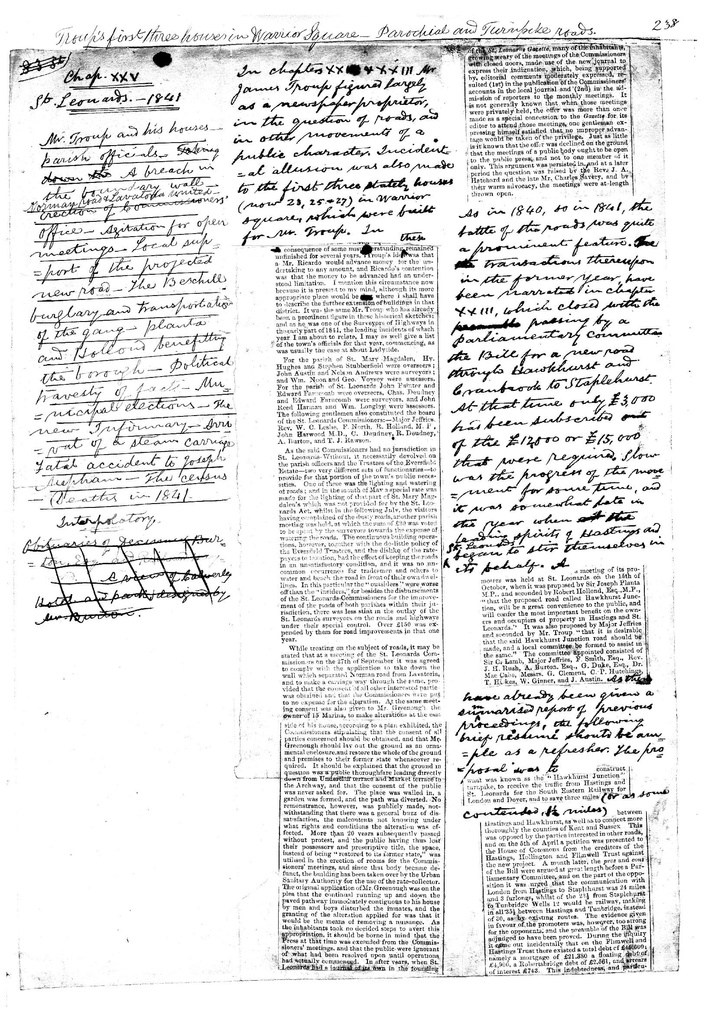 Troup's first three houses in Warrior Square — Parochial and Turnpike roads.
238
Chap. XXV
St. Leonards. — 1841
Mr. Troup and his houses —
parish officials — Taking
down the A breach in
the boundary wall
Norman Road & Lavatoria united —
erection of Commissioners'
office — Agitation for open
meetings — Local sup-
=port of the projected
new road. The Bexhill
burglary and transportation
of the gang — Planta
and Hollond benefitting
the borough — Political
travesty of — Mu-
=nicipal elections — The
new Infirmary — Arri
=val of a steam carriage
Fatal accident to Joseph
— The census
— Deaths in 1841
Interpolatory.
Obituaries of
Hotel and park designed by
Mr.
In chapters XX & XXIII Mr.
James Troup figured largely
as a newspaper proprietor,
in the question of roads, and
in other movements of a
public character. Incident
=al allusion was also made
to the first three stately houses
(now 23, 25 & 27) in Warrior
square, which were built
for Mr. Troup. In then
consequence of some misunderstanding remained
unfinished for several years. Troup's idea was that
a Mr. Ricardo would advance money for the un-
dertaking to any amount, and Ricardo's contention
was that the money to be advanced had an under-
stood limitation. I mention this circumstance now
because it is present to my mind, although its more
appropriate place would be where I shall have
to describe the further extension of buildings in that
district. It was the same Mr. Troup who has already
been a prominent figure in these historical sketches;
and as he was one of the Surveyors of Highways in
the early part of 1841, the leading incidents of which
year I am about to relate, I may as well give a list
of the town's officials for that year, commencing, as
was usually the case at about Ladytide.
For the parish of St. Mary Magdalen, Hy.
Hughes and Stephen Stubberfield were overseers;
John Austin and Nelson Andrews were surveyors;
and Wm. Noon and Geo. Voysey were assessors.
For the parish of St. Leonards John Painter and
Edward Farncomb were overseers, Chas. Deudney
and Edward Farncomb were surveyors, and John
Reed Harman and Wm. Longley were assessors.
The following gentlemen also constituted the board
of the St. Leonards Commissioners—Major Jeffries,
Rev. W. C. Leslie, F. North, R. Hollond, M.P.,
John Harwood M.D., C. Deudney, R. Deudney,
A. Burton, and T. J. Rawson.
As the said Commissioners had no jurisdiction in
St. Leonards Without, it necessarily devolved on
the parish officers and the Trustees of the Eversfield
Estate—two very different sets of functionaries—to
provide for that portion of the town's public neces-
sities. One of these was the lighting and watering
of roads; and in the month of May a special rate was
made for the lighting of that part of St. Mary Mag-
dalen's which was not provided for by the St. Leo-
nards Act, whilst in the following July, the visitors
having complained of the dusty roads, another parish
meeting was held, at which the sum of £25 was voted
to be spent by the surveyors towards the expense of
watering the roads. The continuous building opera-
tions, however, together with the do-little policy of
the Eversfield Trustees, and the dislike of the rate-
payers to taxation, had the effect of keeping the roads
in an unsatisfactory condition, and it was no un-
common occurrence for tradesmen and others to
water and beach the road in front of their own dwel-
lings. In this particular the "outsiders" were worse
off than the "insiders," for besides the disbursements
of the St. Leonards Commissioners for the improve-
ment of the roads of both parishes within their juris-
diction, there was less stint in the outlay of the
St. Leonards surveyors on the roads and highways
under their special control. Over £150 was ex-
pended by them for road improvements in that one
year.
While treating on the subject of roads, it may be
stated that at a meeting of the St. Leonards Com-
missioners on the 27th of September it was agreed
to comply with the application to take down the
wall which separated Norman road from Lavatoria,
and to make a carriage way through the same, pro-
vided that the consent of all other interested parties
was obtained and that the Commissioners were put
to no expense for the alteration. At the same meet-
ing consent was also given to Mr. Greenough, the
owner of 15 Marina, to make alterations at the east
side of his house, according to a plan exhibited, the
Commissioners stipulating that the consent of all
parties concerned should be obtained, and that Mr.
Greenough should lay out the ground as an orna-
mental enclosure, and restore the whole of the ground
and premises to their former state whensoever re-
quired. It should be explained that the ground in
question was a public thoroughfare leading directly
down from Undercliff terrace and Market terrace to
the Archway, and that the consent of the public
was never asked for. The place was walled in, a
garden was formed, and the path was diverted. No
remonstrance, however, was publicly made, not-
withstanding that there was a general buzz of dis-
satisfaction, the malcontents not knowing under
what rights and conditions the alteration was ef-
fected. More than 20 years subsequently passed
without protest, and the public having thus lost
their possessory and prescriptive title, the space,
instead of being "restored to its former state," was
utilised in the erection of rooms for the Commis-
sioners' meetings, and since that body became de-
funct, the building has been taken over by the Urban
Sanitary Authority for the use of the rate-collector.
The original application of Mr. Greenough was on the
plea that the continual running up and down the
paved pathway immediately contiguous to his house
by men and boys disturbed the inmates, and the
granting of the alteration applied for was that it
would be the means of removing a nuisance. As
the inhabitants took no decided steps to avert this
appropriation, it should be borne in mind that the
Press at that time was excluded from the Commis-
sioners' meetings, and that the public were ignorant
of what had been resolved upon until operations
had actually commenced. In after years, when St.
Leonards had a journal of its own in the founding
of the St. Leonards Gazette, many of the inhabitants,
growing weary of the meetings of the Commissioners
with closed doors, made use of the new journal to
express their indignation, which, being supported
by editorial comments moderately expressed, re-
sulted (1st) in the publication of the Commissioners'
accounts in the local journal and (2nd) in the ad-
mission of reporters to the monthly meetings. It
is not generally known that when those meetings
were privately held, the offer was more than once
made as a special concession to the Gazette for its
editor to attend those meetings, one gentleman ex-
pressing himself satisfied that no improper advan-
tage would be taken of the privilege. Just as little
is it known that the offer was declined on the ground
that the meetings of a public body ought to be open
to the public press, and not to one member of it
only. This argument was persisted in, and at a later
period the question was raised by the Rev. J. A.
Hatchard and the late Mr. Charles Savery, and by
their warm advocacy, the meetings were at length
thrown open.
As in 1840, so in 1841, the
battle of the roads was quite
a prominent feature. The
transactions thereupon
in the former year, have
been narrated in chapter
XXIII, which closed with the
passing by a
Parliamentary Committee
the Bill for a new road
through Hawkhurst and
Cranbrook to Staplehurst.
At that time only £3,000
has been subscribed out
of the £12,000 or £15,000
that were required. Slow
was the progress of the move
=ment for some time, and
it was somewhat late in
the year when
leading spirits of Hastings and
St. Leonards
began to stir themselves in
its behalf. A
meeting of its pro-
moters was held at St. Leonards on the 15th of
October, when it was proposed by Sir Joseph Planta
M.P., and seconded by Robert Hollond, Esq., M.P.,
"that the proposed road called Hawkhurst Junc-
tion, will be a great convenience to the public, and
will confer the most important benefit on the own-
ers and occupiers of property in Hastings and St.
Leonards." It was also proposed by Major Jeffries
and seconded by Mr. Troup "that it is desirable
that the said Hawkhurst Junction road should be
made, and a local committee be formed to assist in
the same." The committee appointed consisted of
Sir C. Lamb, Major Jeffries, F. Smith, Esq., Rev.
J. H. Rush, A. Burton, Esq., G. Duke, Esq., Dr.
Mac Cabe, Messrs. G. Clement, C. P. Hutchings,
T. Hickes, W. Ginner, and J. Austin. As there
have already been given a
summarised report of previous
proceedings, the following
brief resumé should be am
=ple as a refresher. The pro
=posal was to construct
what was known as the "Hawkhurst Junction"
turnpike, to receive the traffic from Hastings and
St. Leonards for the South Eastern Railway for
London and Dover, and to save three miles (or as some
contended, miles) between
Hastings and Hawkhurst, as well as to connect more
thoroughly the counties of Kent and Sussex. This
was opposed by the parties interested in other roads,
and on the 5th of April a petition was presented to
the House of Commons from the creditors of the
Hastings, Hollington and Flimwell Trust against
the new project. A month later, the pros and cons
of the Bill were argued at great length before a Par-
liamentary Committee, and on the part of the oppo-
sition it was urged that the communication with
London from Hastings to Staplehurst was 24 miles
and 3 furlongs, whilst of the 23¾ from Staplehurst
to Tunbridge Wells 12 would be railway, making
in all between Hastings and Tunbridge, instead
of 30, as by existing routes. The evidence given
in favour of the promoters was, however, too strong
for the opponents, and the preamble of the Bill was
adjudged to have been proved. During the inquiry
it came out incidentally that on the Flimwell and
Hastings Trust there existed a total debt of
namely a mortgage of £21,380 a floating debt of
a Robertsbridge debt of £2,561, and arrears
of interest £743. This indebtedness, and particu-